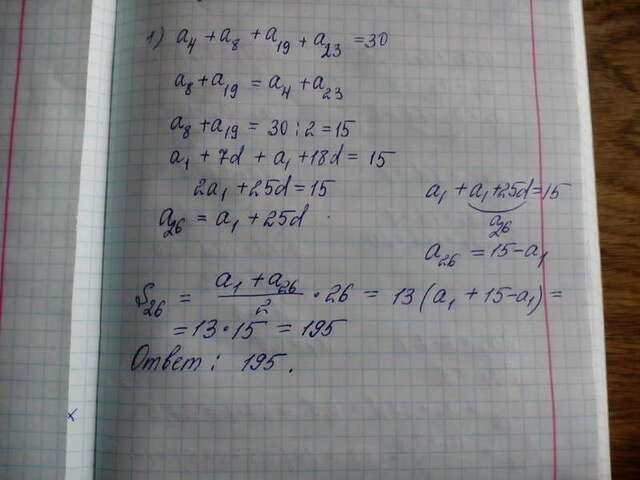 1) a₄ + a₈ + a₁₉ + a₂₃ = 30
a₈ + a₁₉ = a₄ + a₂₃
a₈ + a₁₉ = 30 : 2 = 15
a₁ + 7d + a₁ + 18d = 15
2a₁ + 25d = 15
a₂₆ = a₁ + 25d
a₁ + a₁ + 25d = 15
a₂₆
a₂₆ = 15 - a₁
S₂₆ = (a₁ + a₂₆)/2 · 26 = 13 (a₁ + 15 - a₁) =
= 13 · 15 = 195
Ответ: 195.
x